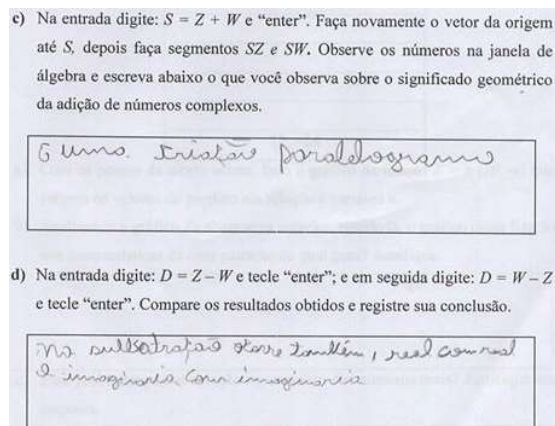 c) Na entrada digite: S = Z + W e “enter”. Faça novamente o vetor da origem
até S, depois faça segmentos SZ e SW. Observe os números na janela de
álgebra e escreva abaixo o que você observa sobre o significado geométrico
da adição de números complexos.
uma paralelogramo
d) Na entrada digite: D = Z – W e tecle “enter”; e em seguida digite: D = W – Z
e tecle “enter”. Compare os resultados obtidos e registre sua conclusão.
na também, real com real
e imaginaria com imaginaria